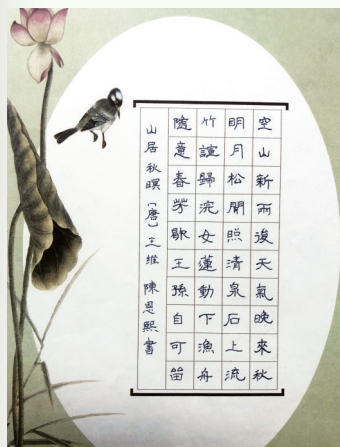 空山新雨後天氣晚來秋
明月松間照清泉石上流
竹諠歸浣女蓮動下漁舟
隨意春芳歇王孫自可留
山居秋暝〔唐〕王維 陳恩熙書